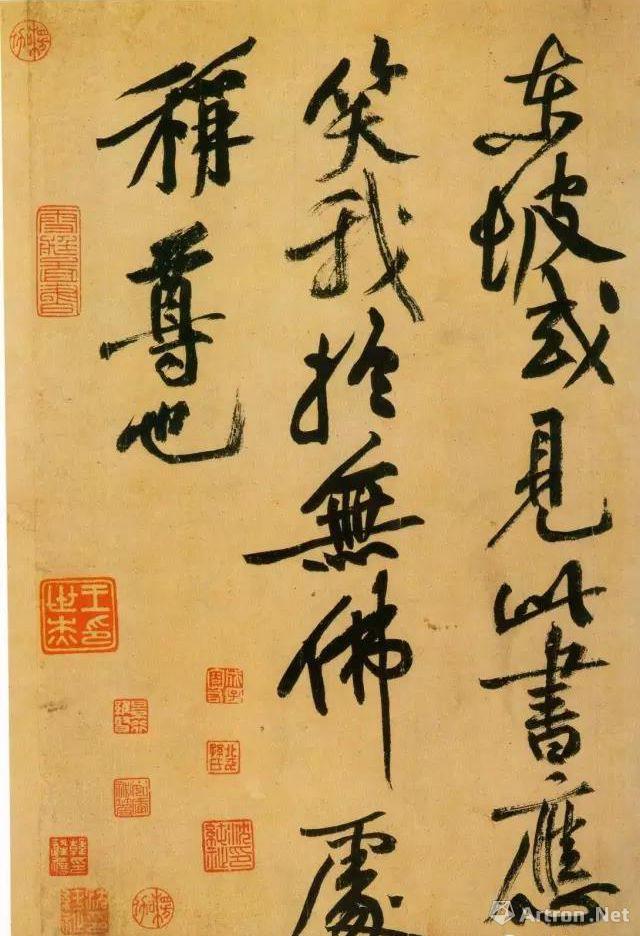 東坡或見此書應
笑我於無佛處
稱尊也
王印世杰
Artron.Net